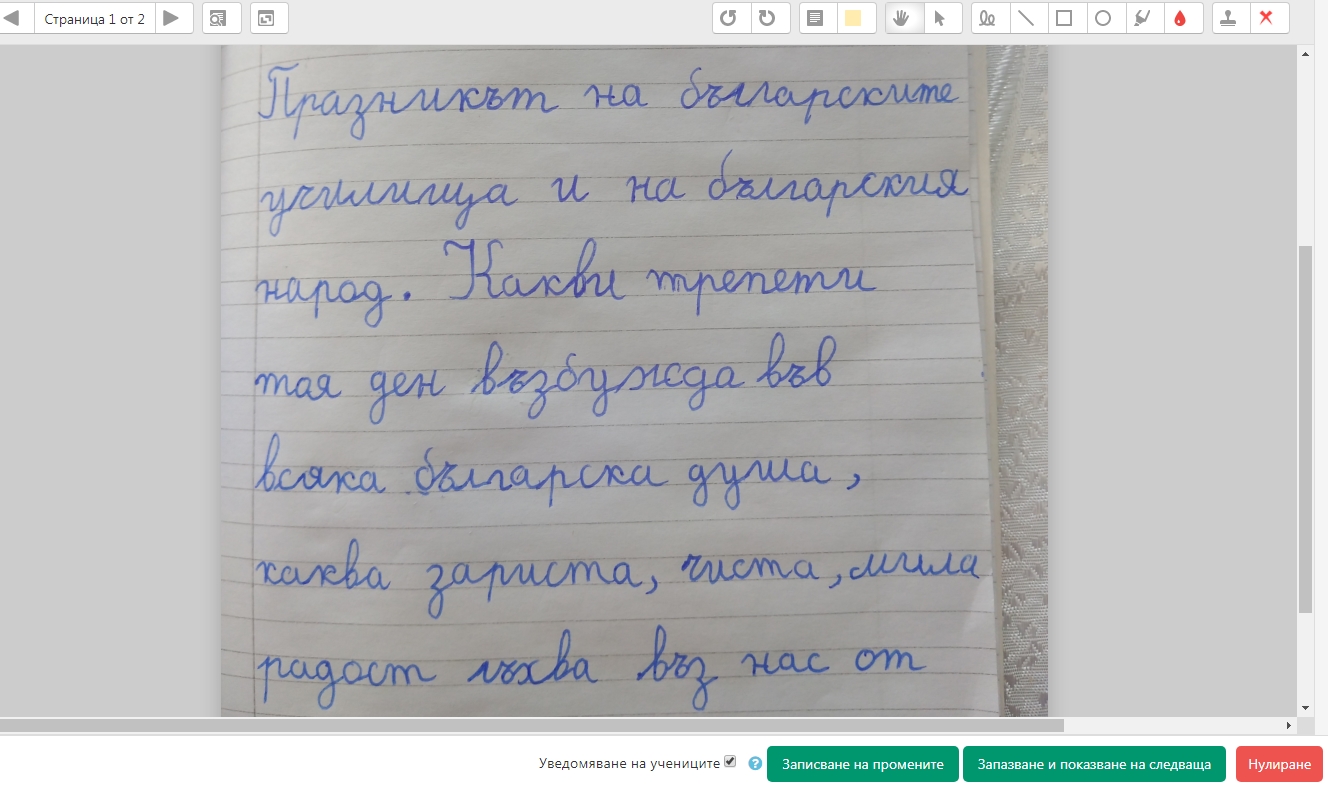 Страница 1 от 2
Празникът на българските
училища и на българския
народ. Какви трепети
тая ден възбужда във
всяка българска душа,
каква зариста, чиста, мила
радост лъхва въз нас от
Уведомяване на учениците
Записване на промените
Запазване и показване на следваща
Нулиране